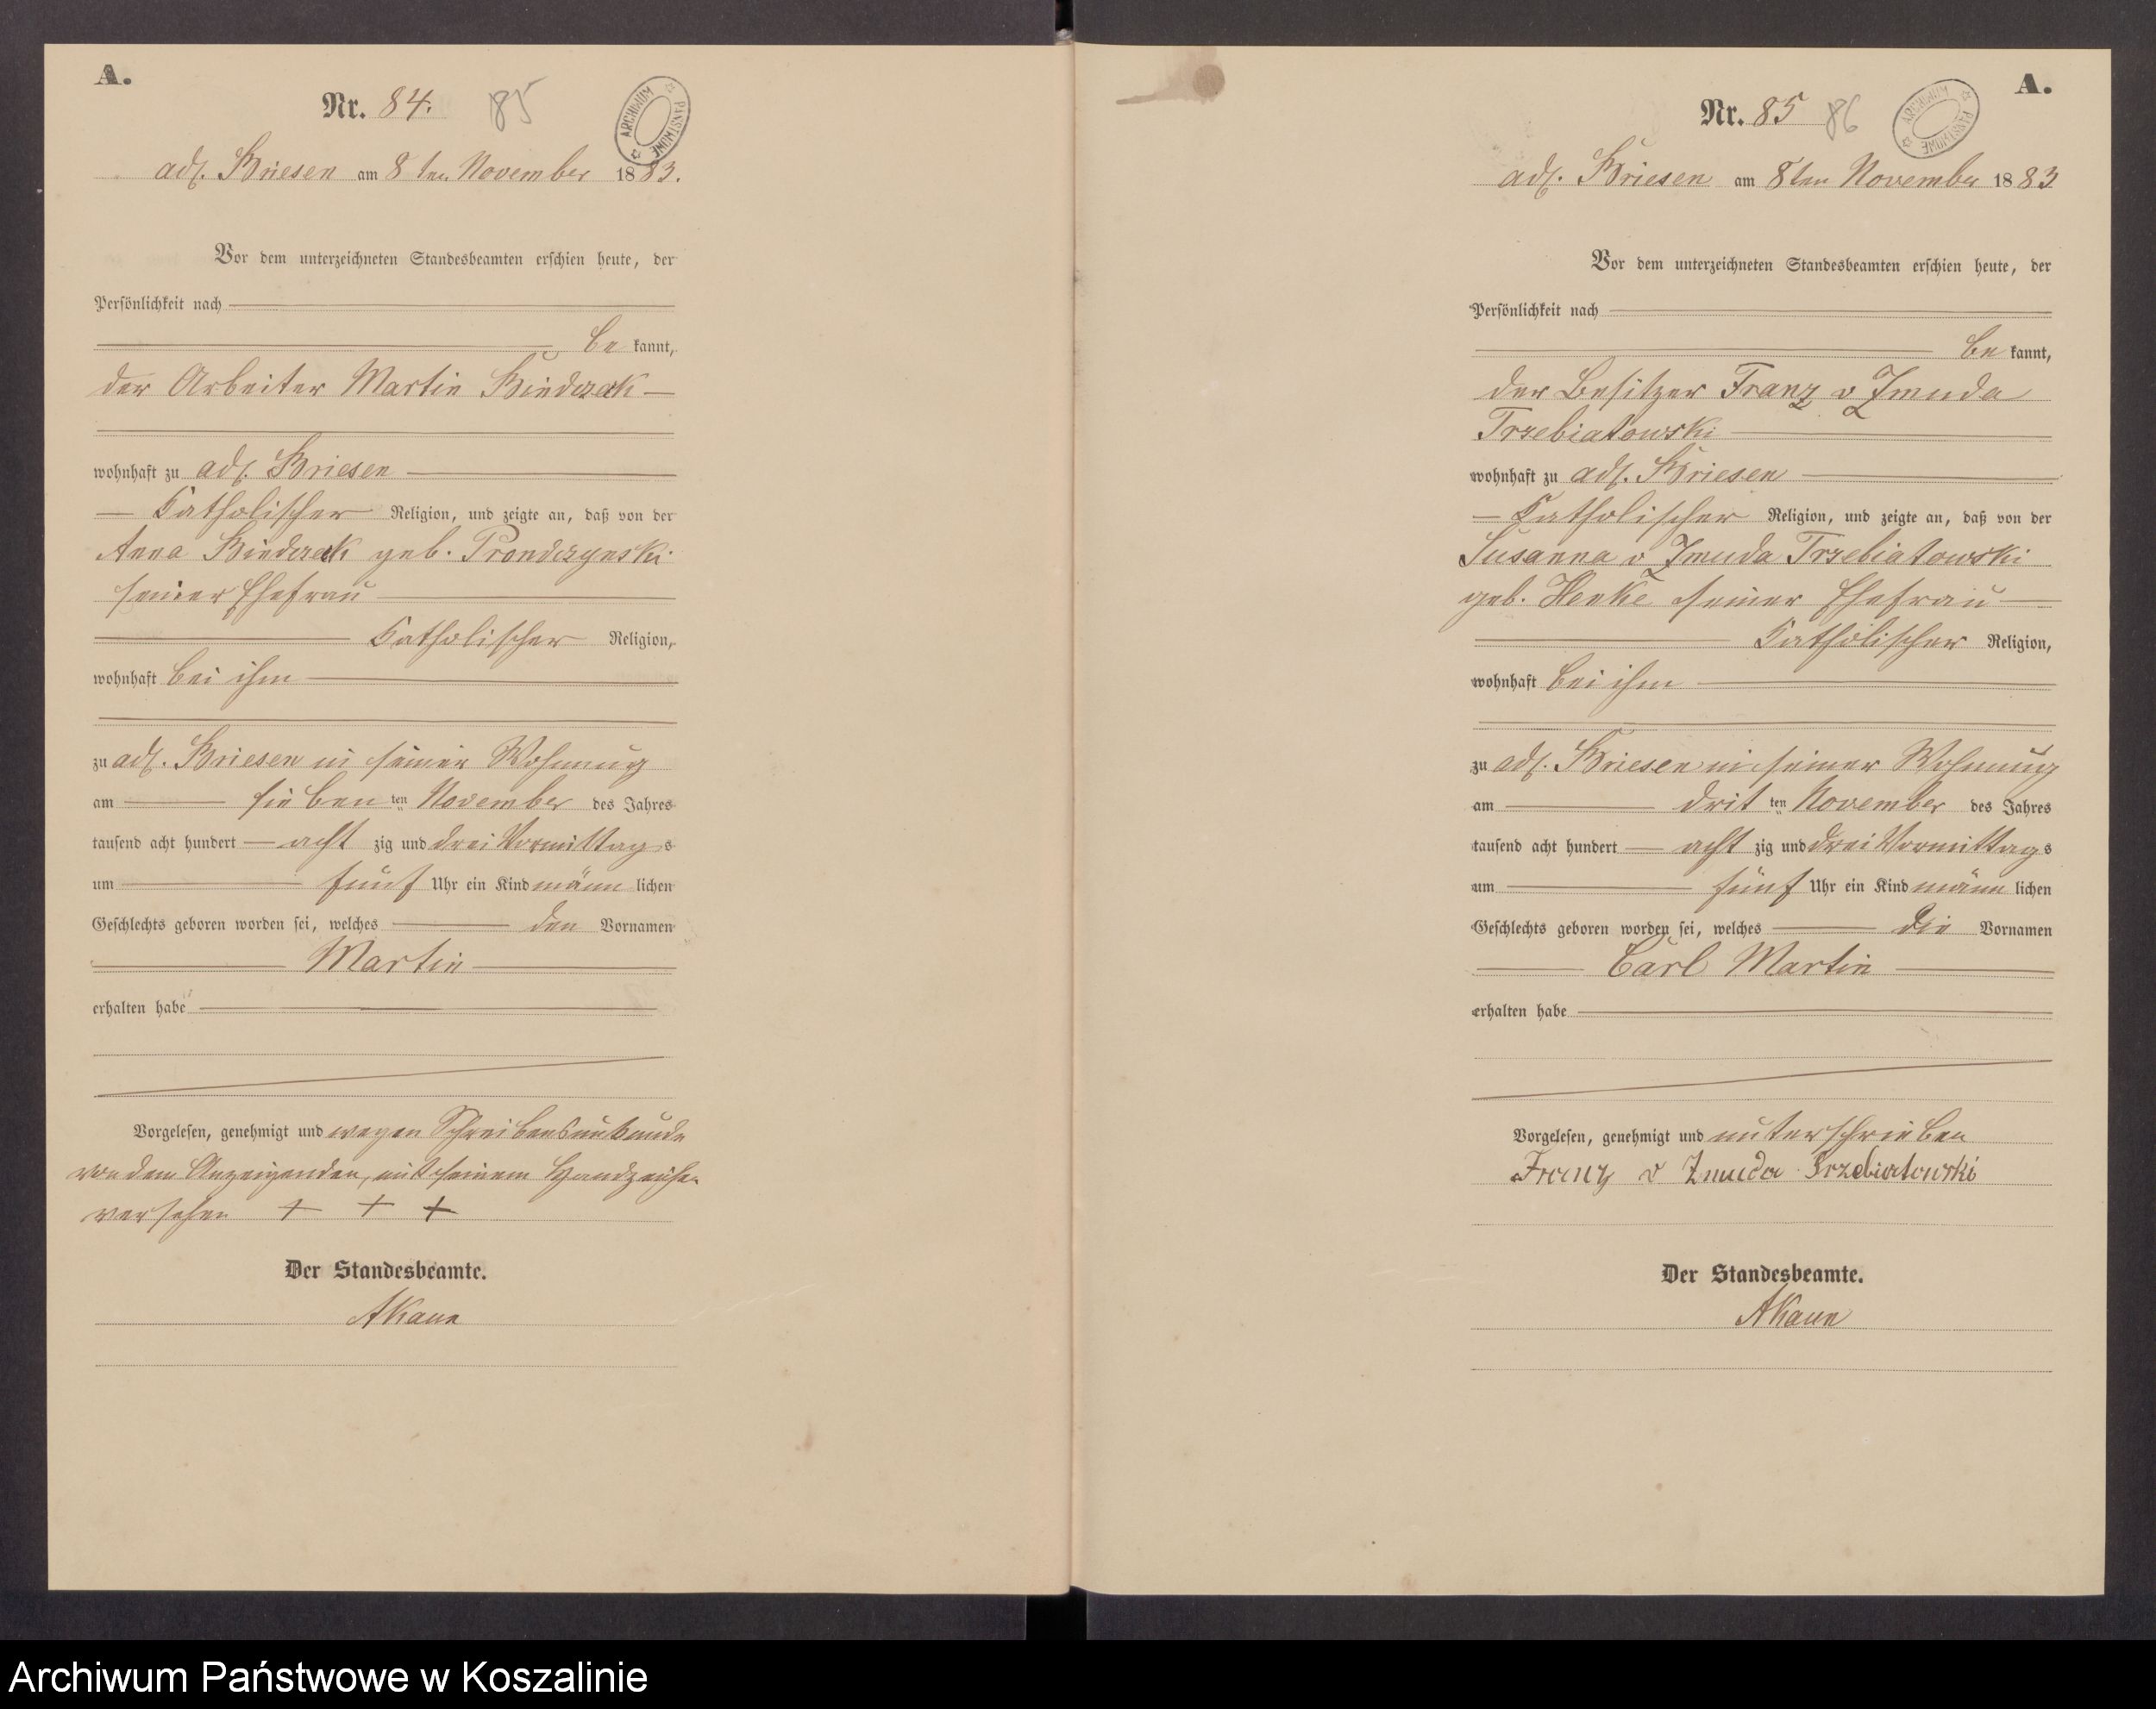 A.
Nr. 84. 85
ARCHIWUM PAŃSTWOWE
adl. Briesen am 8ten November 1883.
Vor dem unterzeichneten Standesbeamten erschien heute, der
Persönlichkeit nach
be kannt,
der Arbeiter Martin
wohnhaft zu adl. Briesen
Katholischer Religion, und zeigte an, daß von der
Anna geb. Prondzynski
seiner Ehefrau
Katholischer Religion,
wohnhaft bei ihm
zu adl. Briesen in seiner Wohnung
am sieben ten November des Jahres
tausend acht hundert acht zig und drei Vormittags
um fünf Uhr ein Kind männ lichen
Geschlechts geboren worden sei, welches den Vornamen
Martin
erhalten habe
Vorgelesen, genehmigt und wegen Schreibensunkunde
von dem Anzeigenden, mit seinem Handzeichen
versehen + + +
Der Standesbeamte.
A.
Nr. 85 86
ARCHIWUM PAŃSTWOWE
adl. Briesen am 8ten November 1883
Vor dem unterzeichneten Standesbeamten erschien heute, der
Persönlichkeit nach
be kannt,
der Besitzer Franz v Zmuda
Trzebiatowski
wohnhaft zu adl. Briesen
Katholischer Religion, und zeigte an, daß von der
Susanna v Zmuda Trzebiatowski
geb. Henke seiner Ehefrau
Katholischer Religion,
wohnhaft bei ihm
zu adl. Briesen in seiner Wohnung
am drit ten November des Jahres
tausend acht hundert acht zig und drei Vormittags
um fünf Uhr ein Kind männ lichen
Geschlechts geboren worden sei, welches die Vornamen
Carl Martin
erhalten habe
Vorgelesen, genehmigt und unterschrieben
Franz v Zmuda Trzebiatowski
Der Standesbeamte.
Archiwum Państwowe w Koszalinie